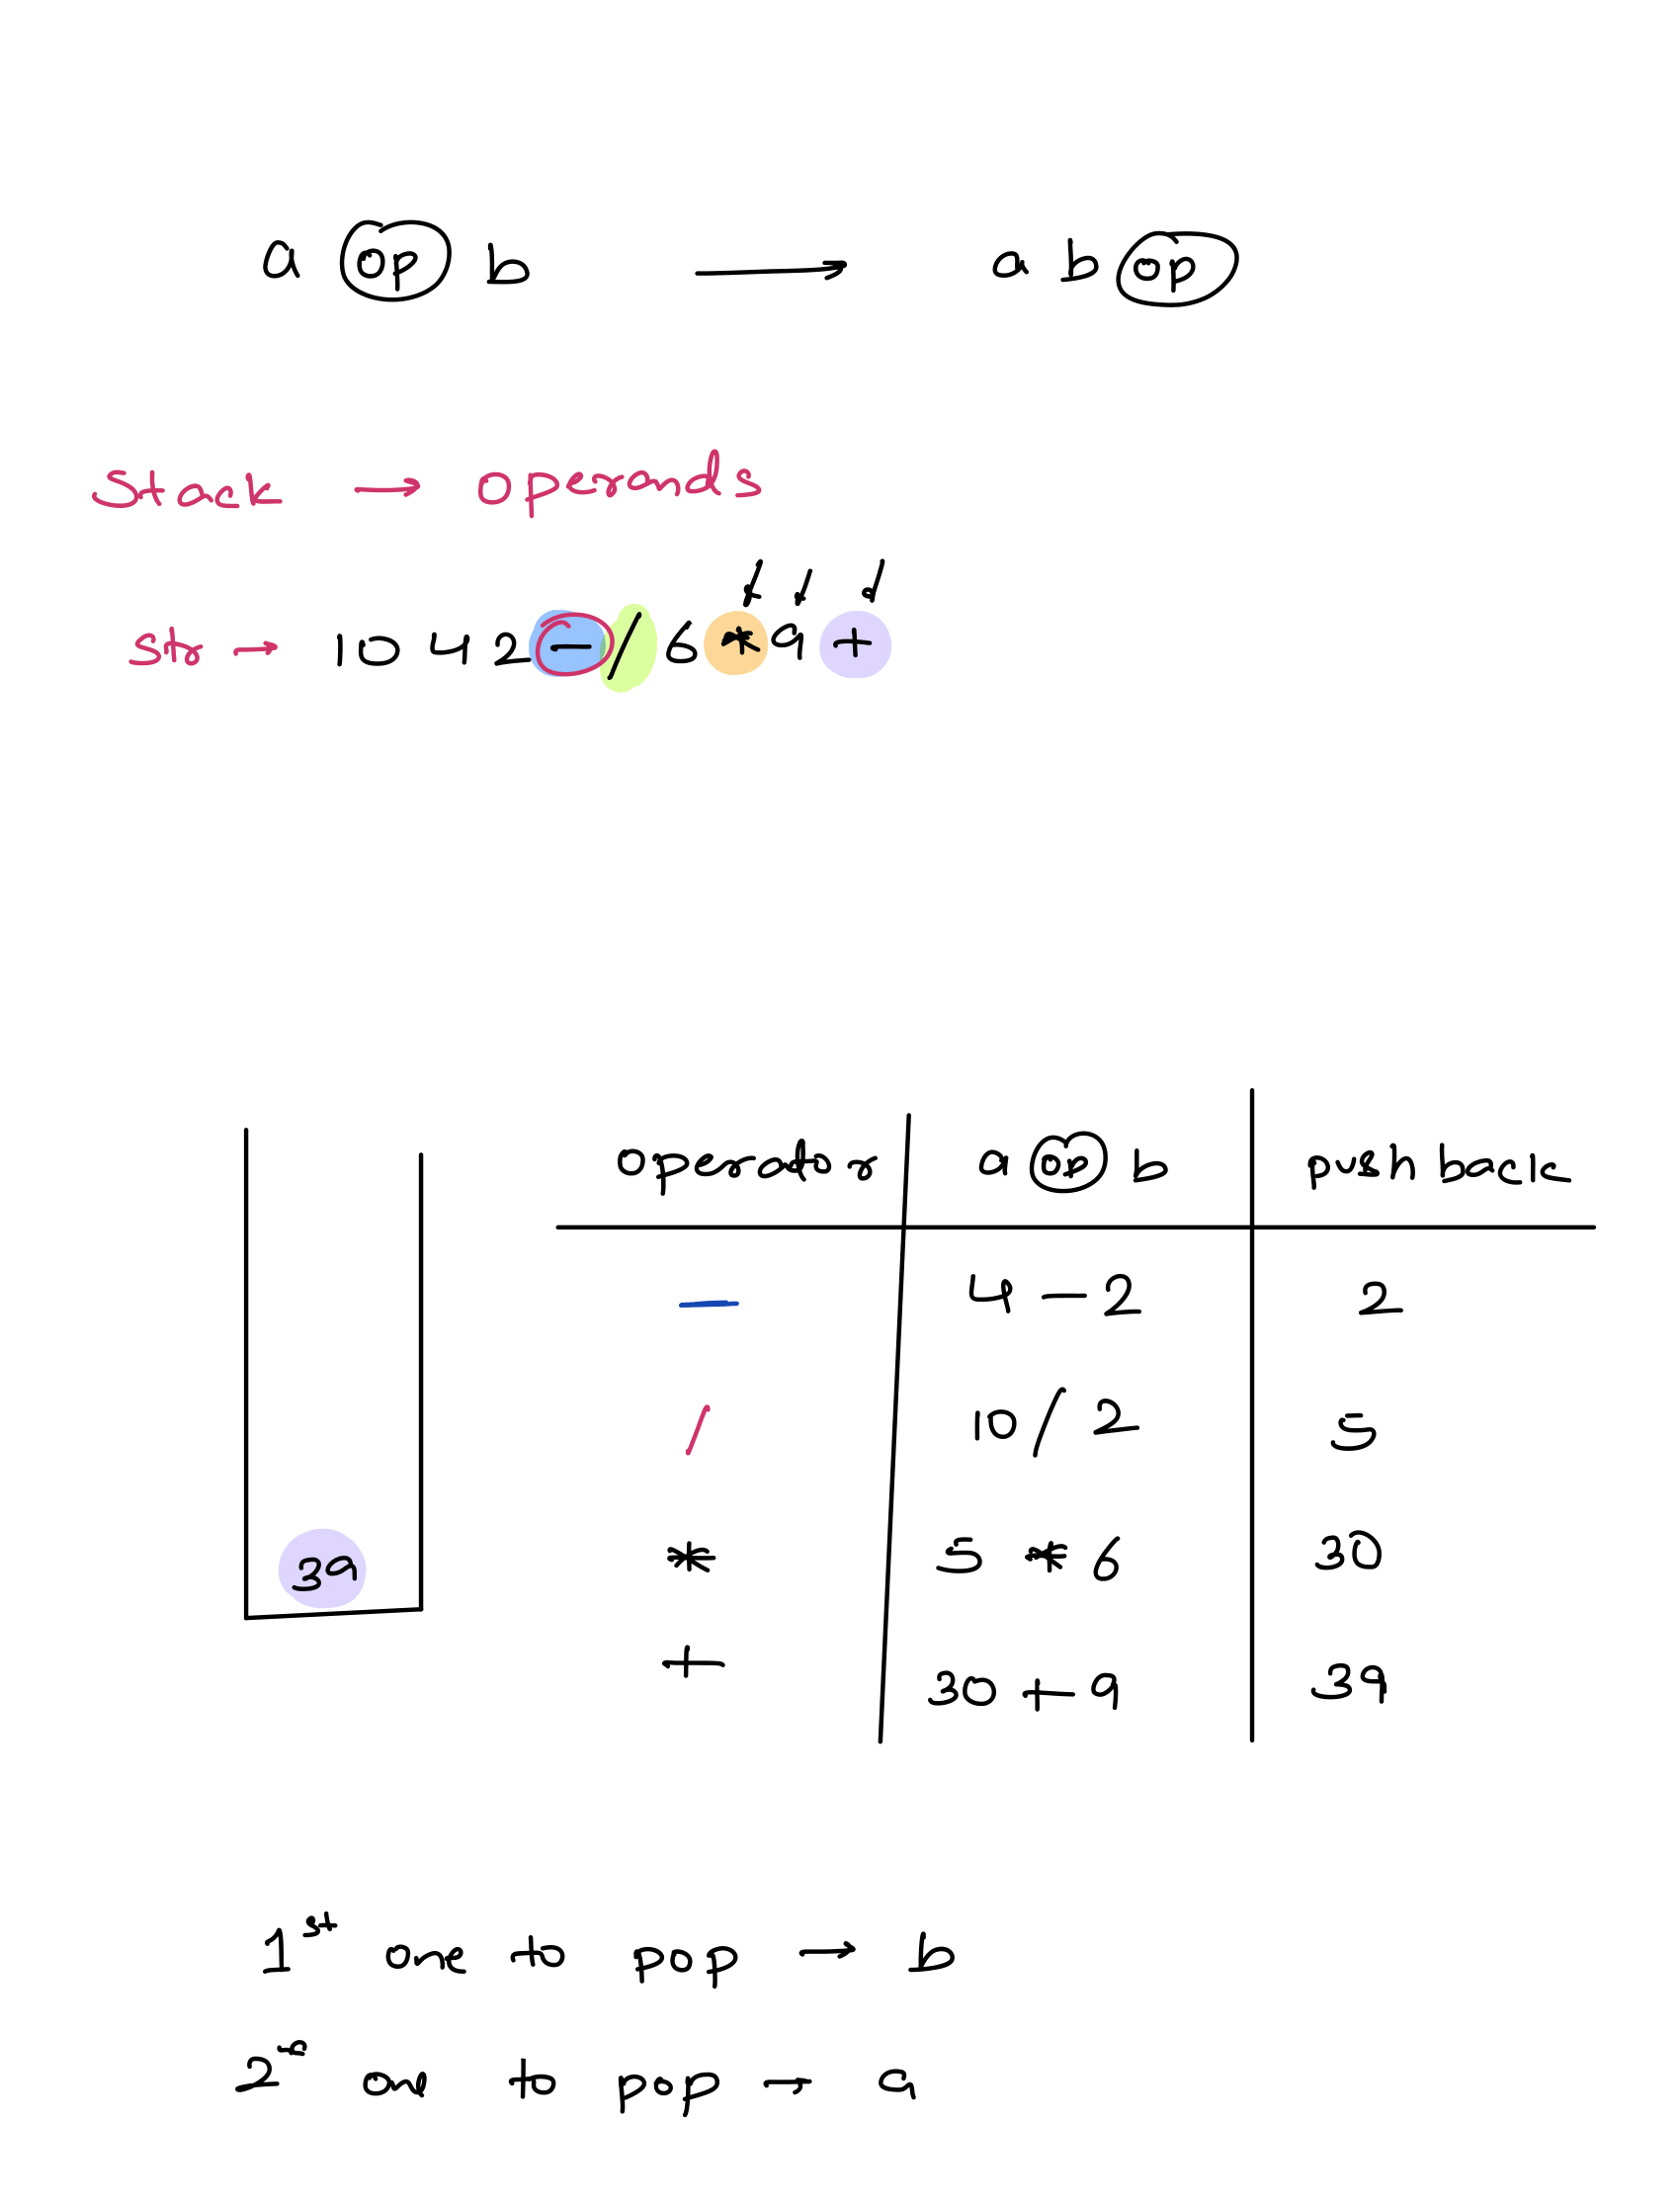 a op b → a b op
Stack → operands
str → 10 4 2 - / 6 * 9 +
operator a op b push back
- 4 - 2 2
/ 10 / 2 5
* 5 * 6 30
39
+ 30 + 9 39
1st one to pop → b
2nd one to pop → a